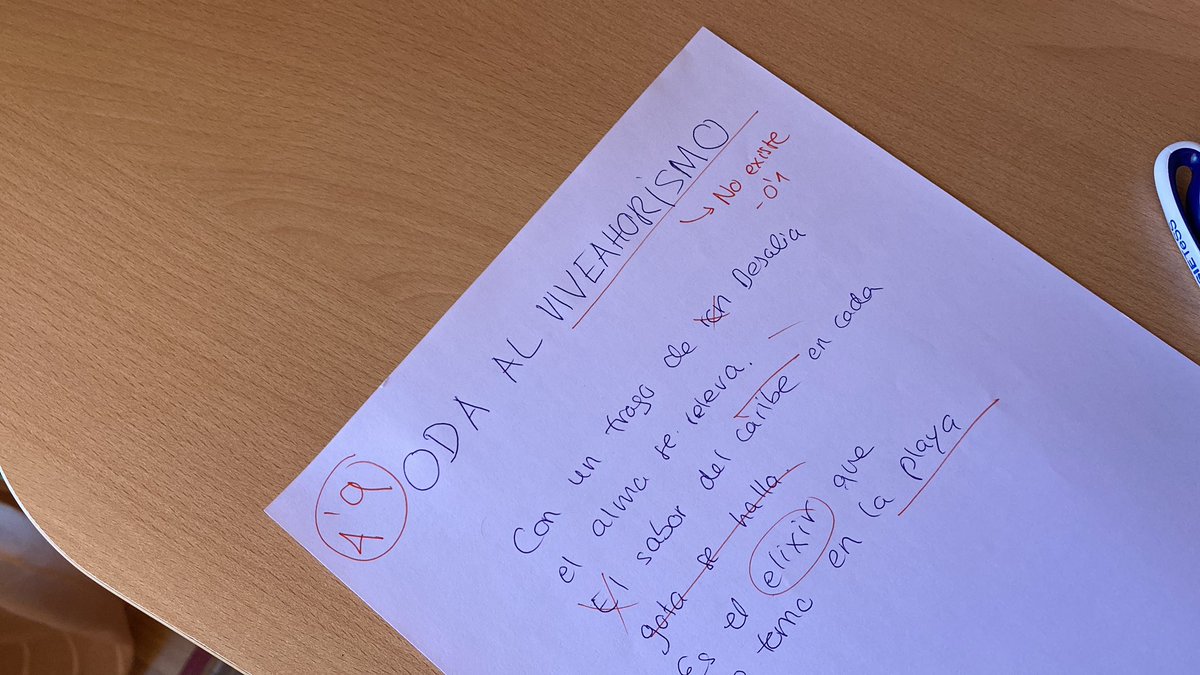 1'9
ODA AL VIVEAHORISMO
No existe
-0'1
Con un trago de ron Desalia
el alma se releva.
El sabor del caribe en cada
gota se halla.
Es el elixir que
temo en la playa